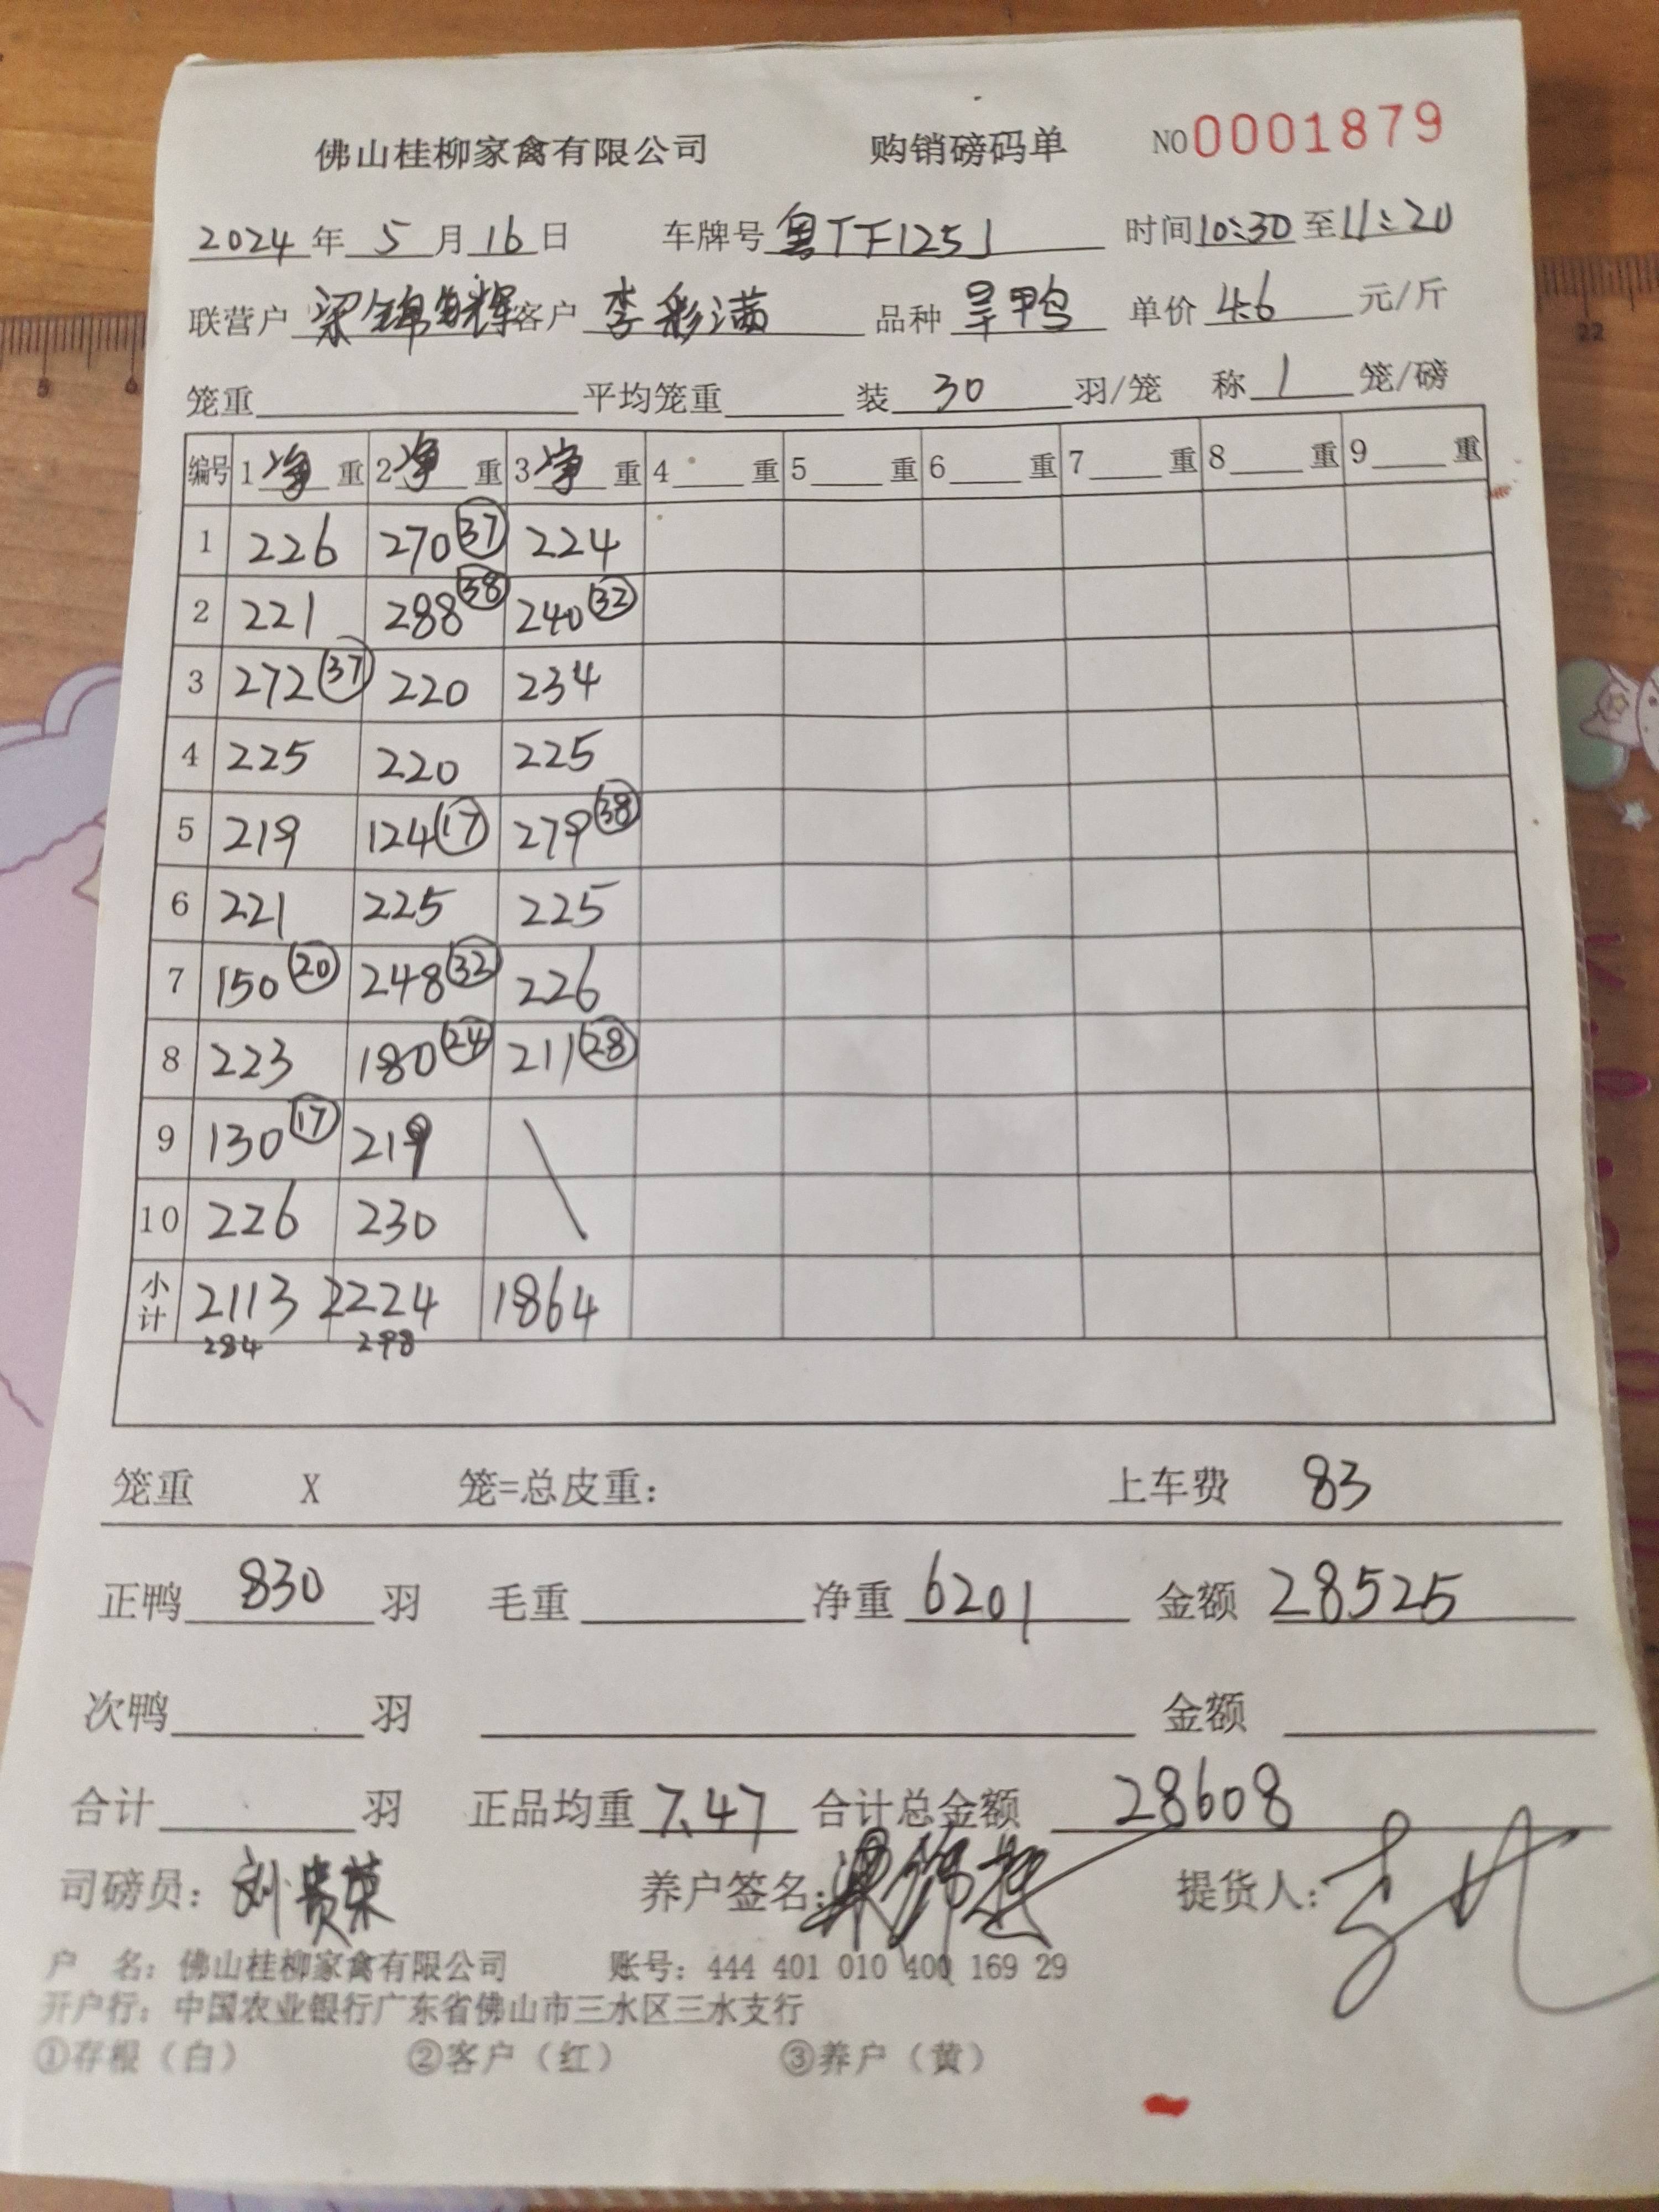 佛山桂柳家禽有限公司 购销磅码单 NO 0001879
2024 年 5 月 16 日 车牌号 粤TF1251 时间 10:30 至 11:20
联营户 梁锦辉 客户 李彩满 品种 旱鸭 单价 4.6 元/斤
笼重 平均笼重 装 30 羽/笼 称 1 笼/磅
编号 1 净 重 2 净 重 3 净 重 4 重 5 重 6 重 7 重 8 重 9 重
1 226 270 37 224
2 221 288 38 240 32
3 272 37 220 234
4 225 220 225
5 219 124 17 279 38
6 221 225 225
7 150 20 248 32 226
8 223 180 24 211 28
9 130 17 219
10 226 230
小计 2113 2224 1864
284 298
笼重 X 笼=总皮重: 上车费 83
正鸭 830 羽 毛重 净重 6201 金额 28525
次鸭 羽 金额
合计 羽 正品均重 7.47 合计总金额 28608
司磅员: 刘贵荣 养户签名: 提货人:
户 名: 佛山桂柳家禽有限公司 账号: 444 401 010 400 169 29
开户行: 中国农业银行广东省佛山市三水区三水支行
①存根（白） ②客户（红） ③养户（黄）